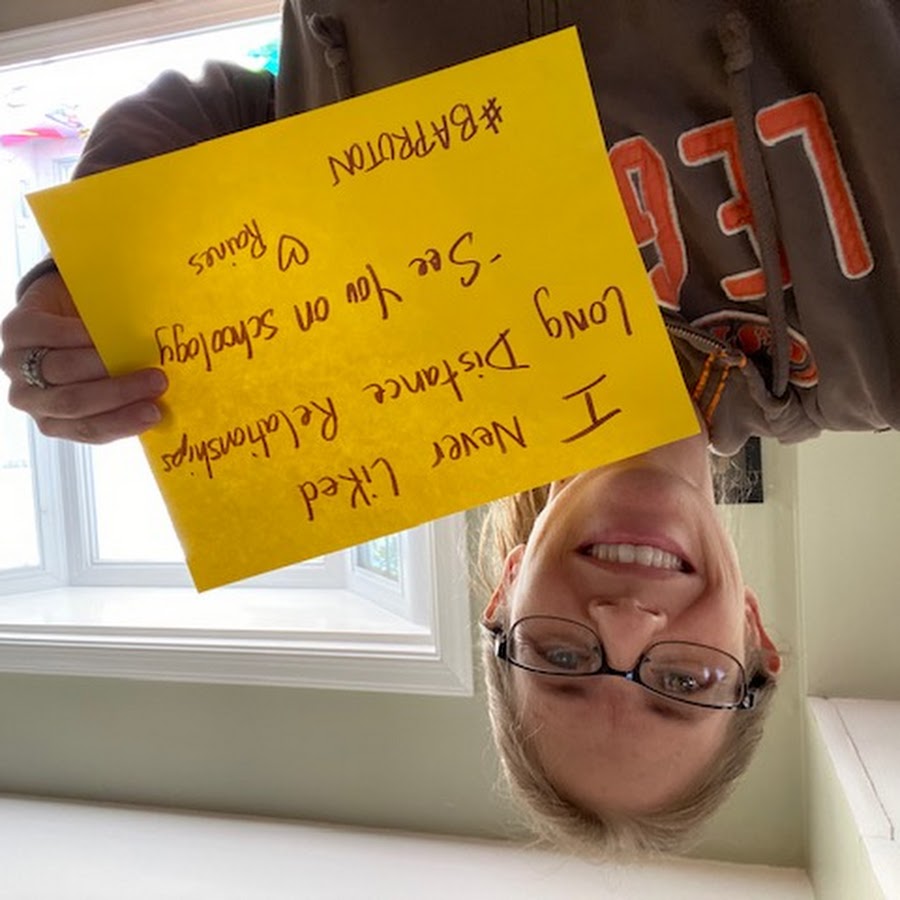 I Never Liked
Long Distance Relationships
-See You on schoology
♡ Raines
#BAPRUTON
LEG